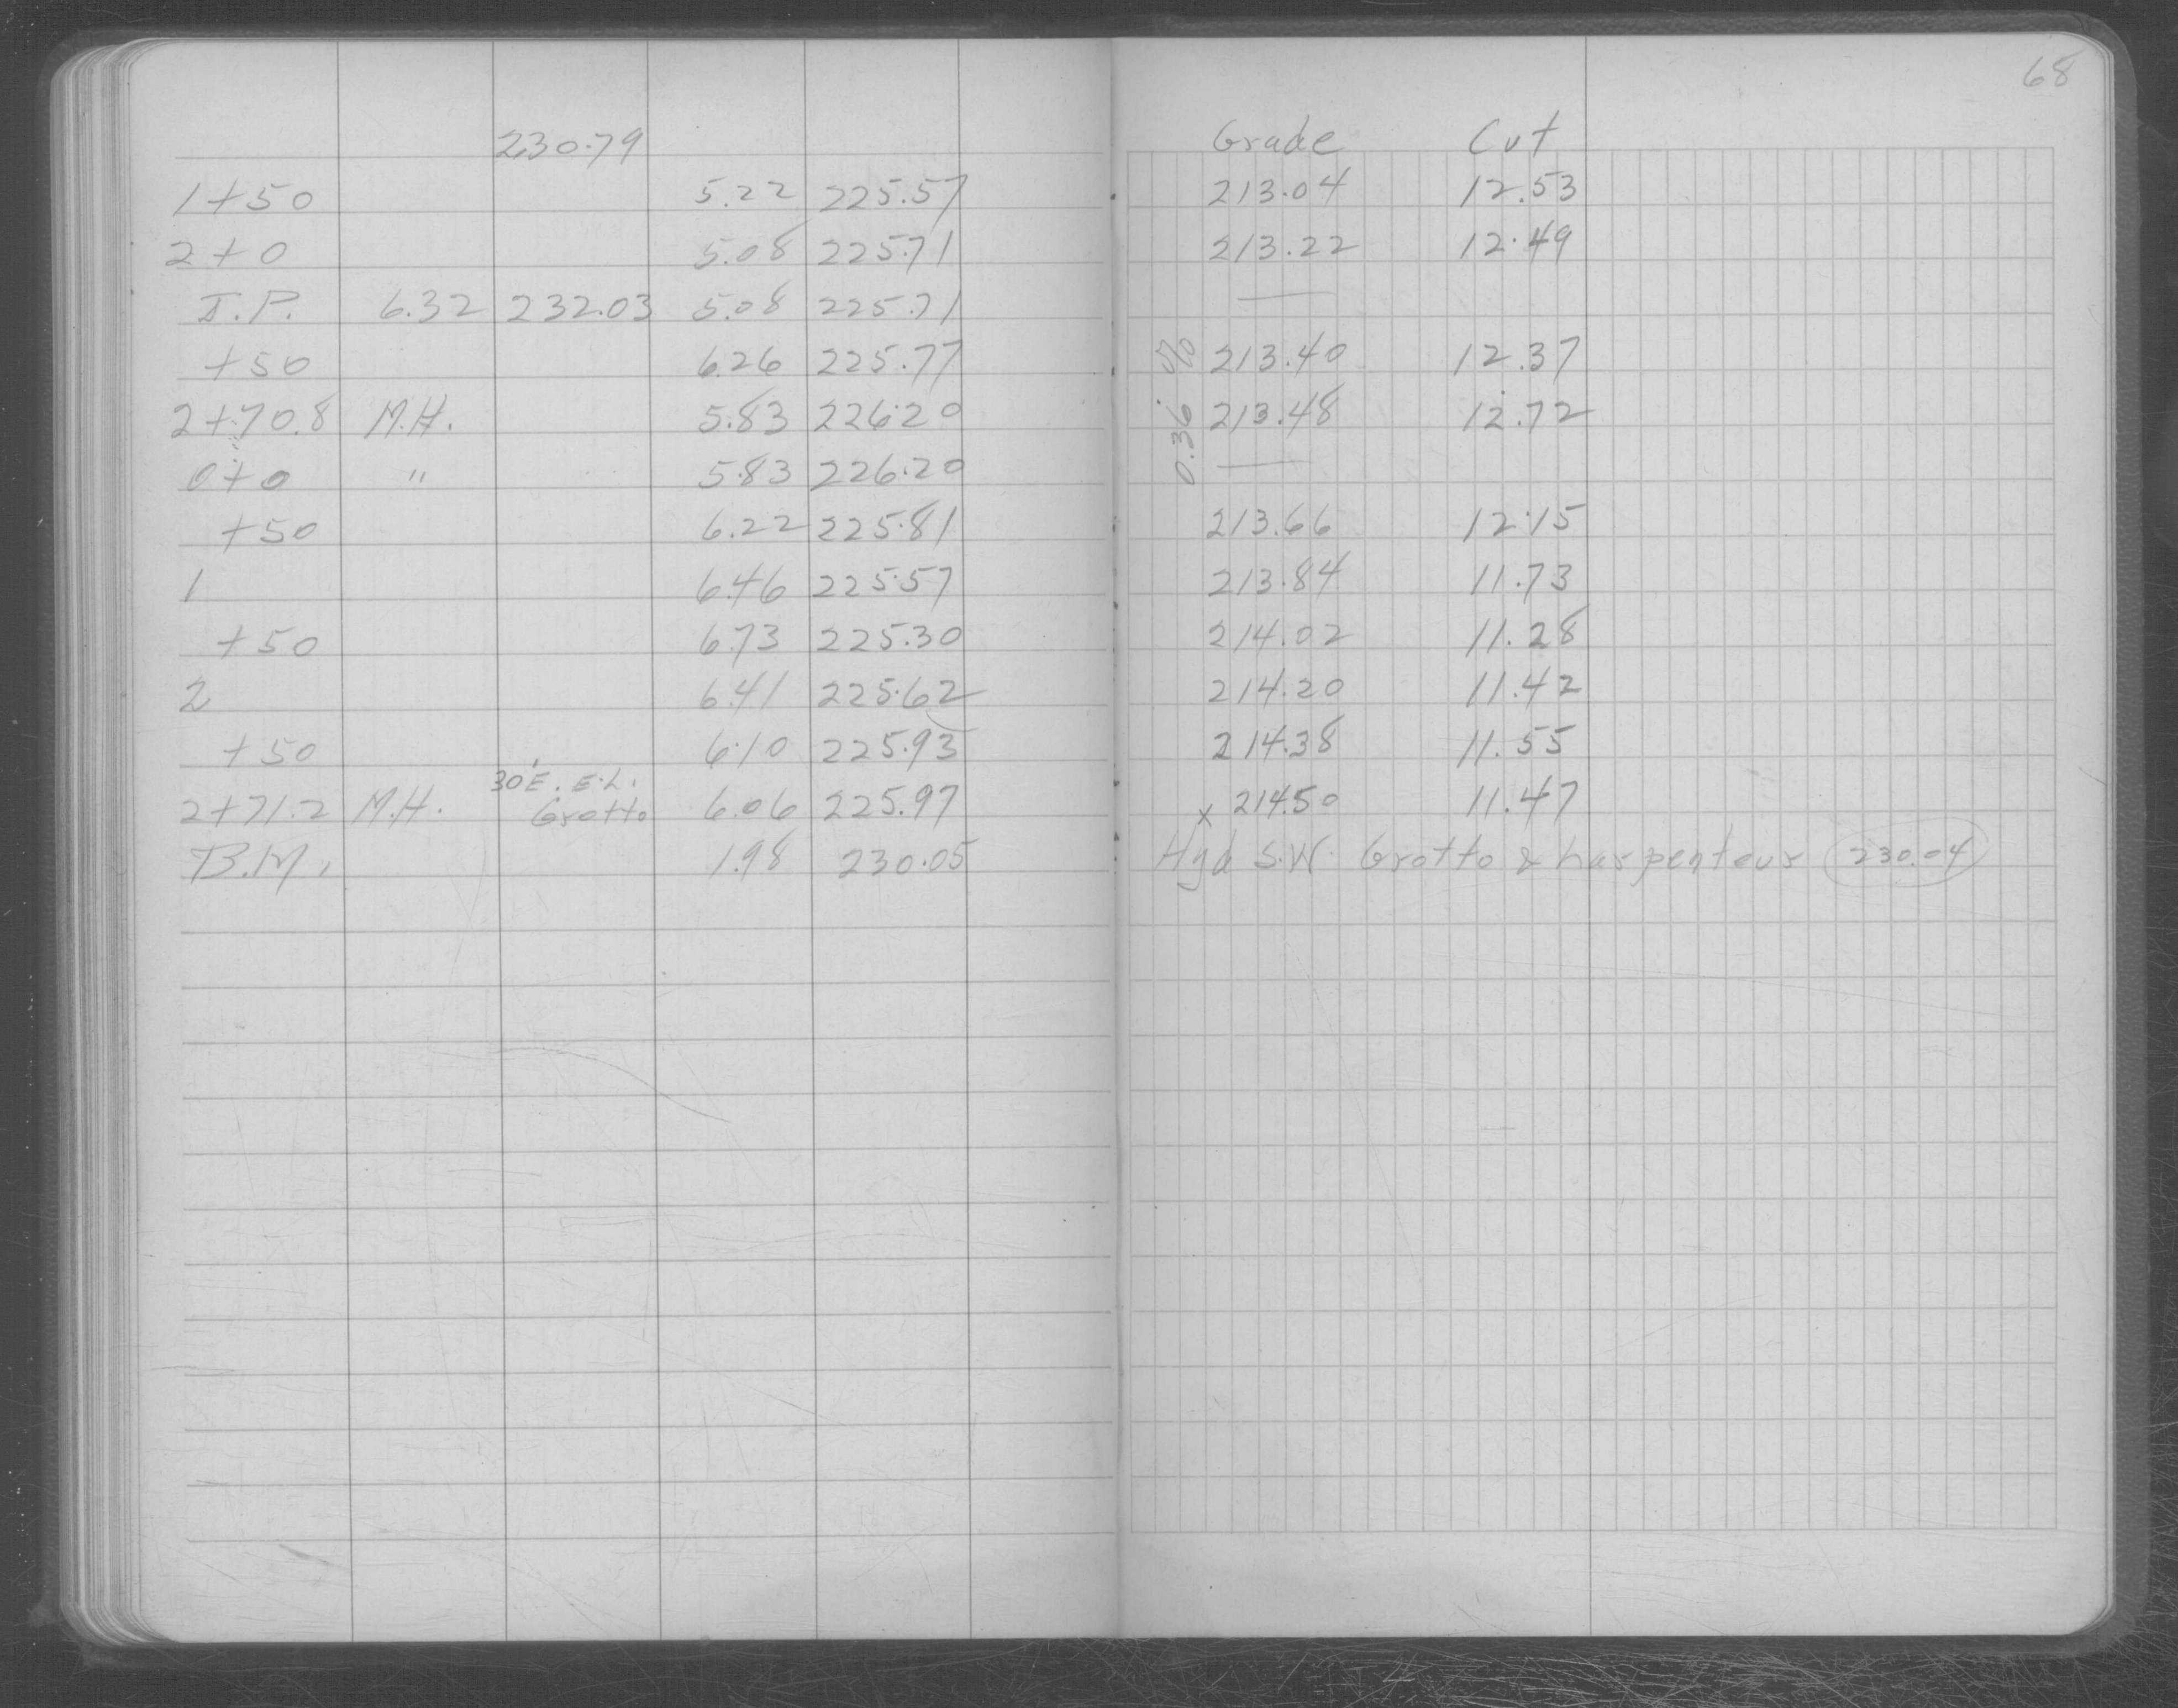 68
230.79 Grade Cut
1+50 5.22 225.57 213.04 12.53
2+0 5.08 225.71 213.22 12.49
T.P. 6.32 232.03 5.08 225.71 —
+50 6.26 225.77 213.40 12.37
0.36%
2+70.8 M.H. 5.83 226.20 213.48 12.72
0+0 " 5.83 226.20 —
+50 6.22 225.81 213.66 12.15
1 6.46 225.57 213.84 11.73
+50 6.73 225.30 214.02 11.28
2 6.41 225.62 214.20 11.42
+50 6.10 225.93 214.38 11.55
30'E. E.L.
2+71.2 M.H. Grotto 6.06 225.97 x 214.50 11.47
B.M. 1.98 230.05 Hyd S.W. Grotto & Charpenteur 230.04